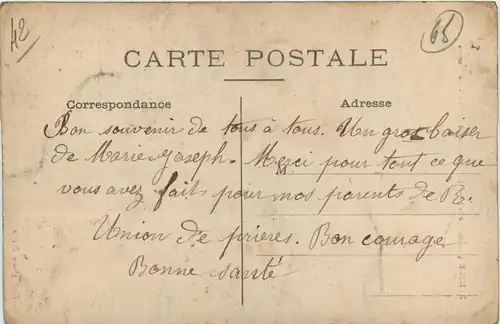 42
65
CARTE POSTALE
Correspondance
Adresse
Bon souvenir de tous à tous. Un gros baiser
de Marie-Joseph. Merci pour tout ce que
M
vous avez fait pour nos parents de Br.
Union de prières. Bon courage
Bonne santé